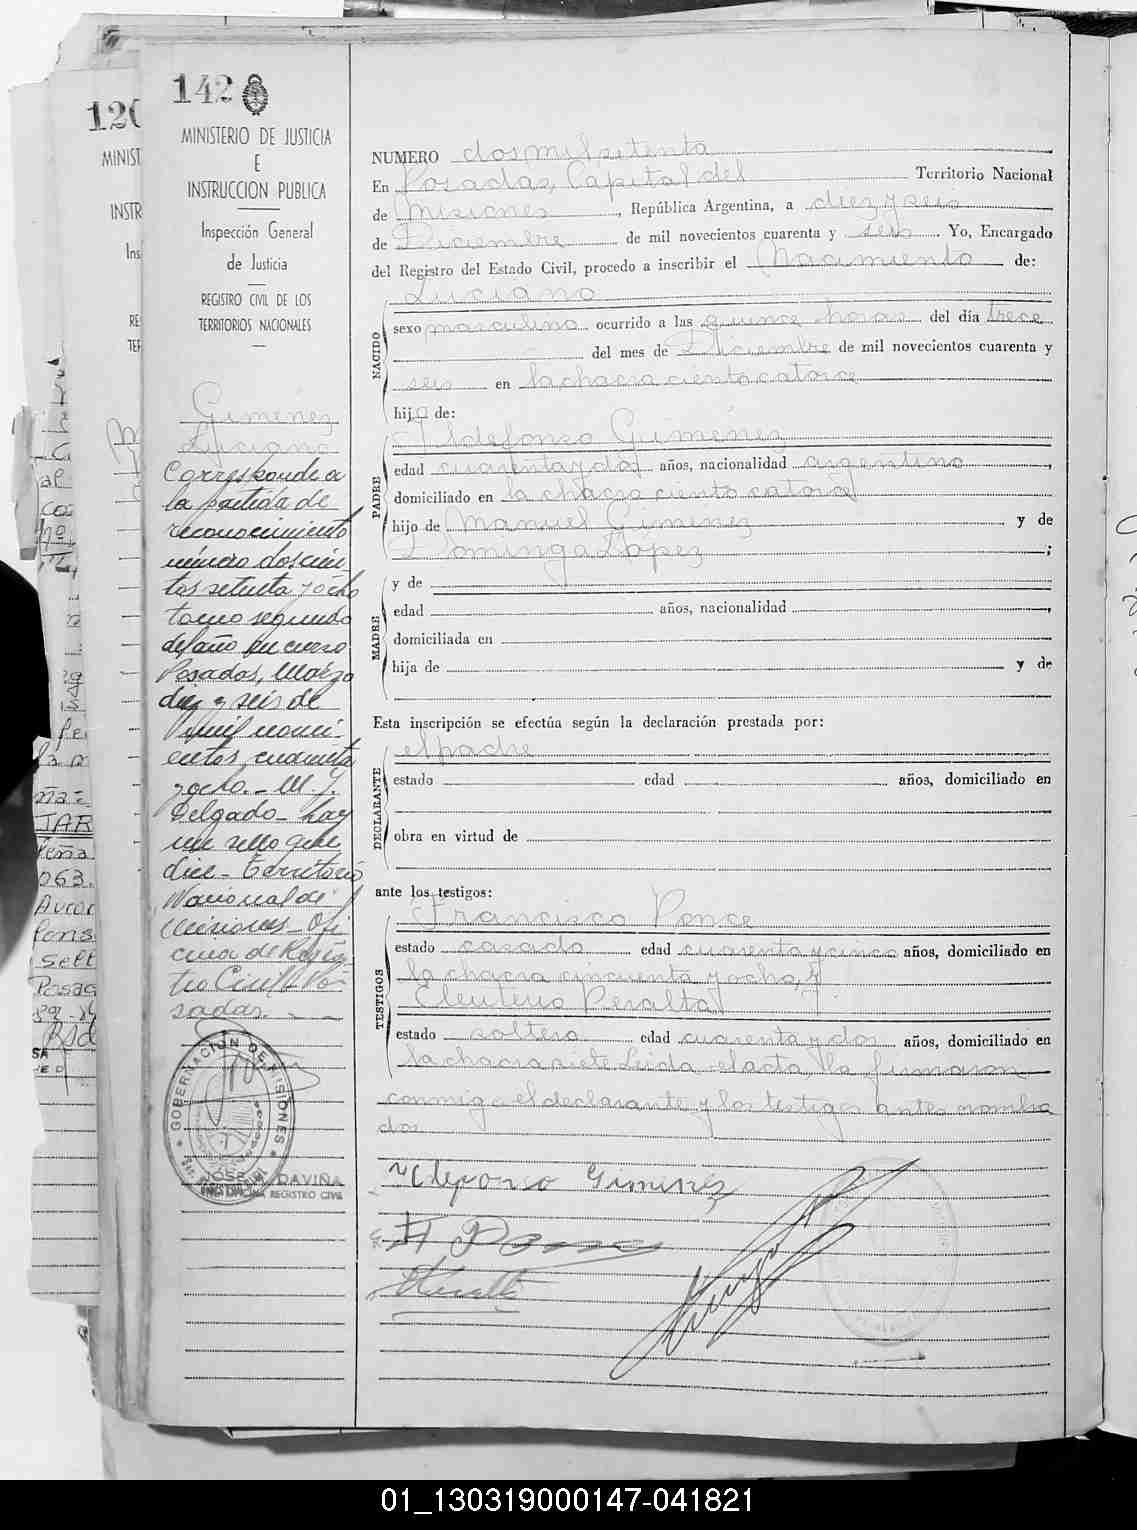 142
MINISTERIO DE JUSTICIA
E
INSTRUCCION PUBLICA
Inspección General
de Justicia
REGISTRO CIVIL DE LOS
TERRITORIOS NACIONALES
Gimenez
Luciano
Corresponde a
la partida de
reconocimiento
número doscien
tos setenta y ocho
tomo segundo
del año en curso
Posadas, Marzo
diez y seis de
mil noveci-
entos cuarenta
y ocho.- M. J.
Delgado - hay
un sello que
dice - Territorio
Nacional de
Misiones - Ofi
cina de Regis
tro Civil - Po-
sadas. - -
GOBERNACION DE MISIONES
JOSE DAVIÑA
OFICINA REGISTRO CIVIL
NUMERO dos mil setenta
En Posadas, Capital del Territorio Nacional
de Misiones, República Argentina, a diez y seis
de Diciembre de mil novecientos cuarenta y seis. Yo, Encargado
del Registro del Estado Civil, procedo a inscribir el Nacimiento de:
NACIDO
Luciano
sexo masculino ocurrido a las quince horas del día trece
del mes de Diciembre de mil novecientos cuarenta y
seis en la chacra ciento catorce
hijo de:
PADRE
Ildefonso Gimenez
edad cuarenta y dos años, nacionalidad argentino,
domiciliado en la chacra ciento catorce
hijo de Manuel Gimenez y de
Dominga Lopez;
MADRE
y de
edad años, nacionalidad ,
domiciliada en
hija de y de
Esta inscripción se efectúa según la declaración prestada por:
DECLARANTE
el padre
estado edad años, domiciliado en
obra en virtud de
ante los testigos:
TESTIGOS
Francisco Ponce
estado casado edad cuarenta y cinco años, domiciliado en
la chacra cincuenta y ocho, y
Eleuterio Peralta
estado soltero edad cuarenta y dos años, domiciliado en
la chacra siete Leida el acta, la firmaron
conmigo el declarante y los testigos antes nombra
dos
Ildeponso Gimenez
F Ponce
01_130319000147-041821